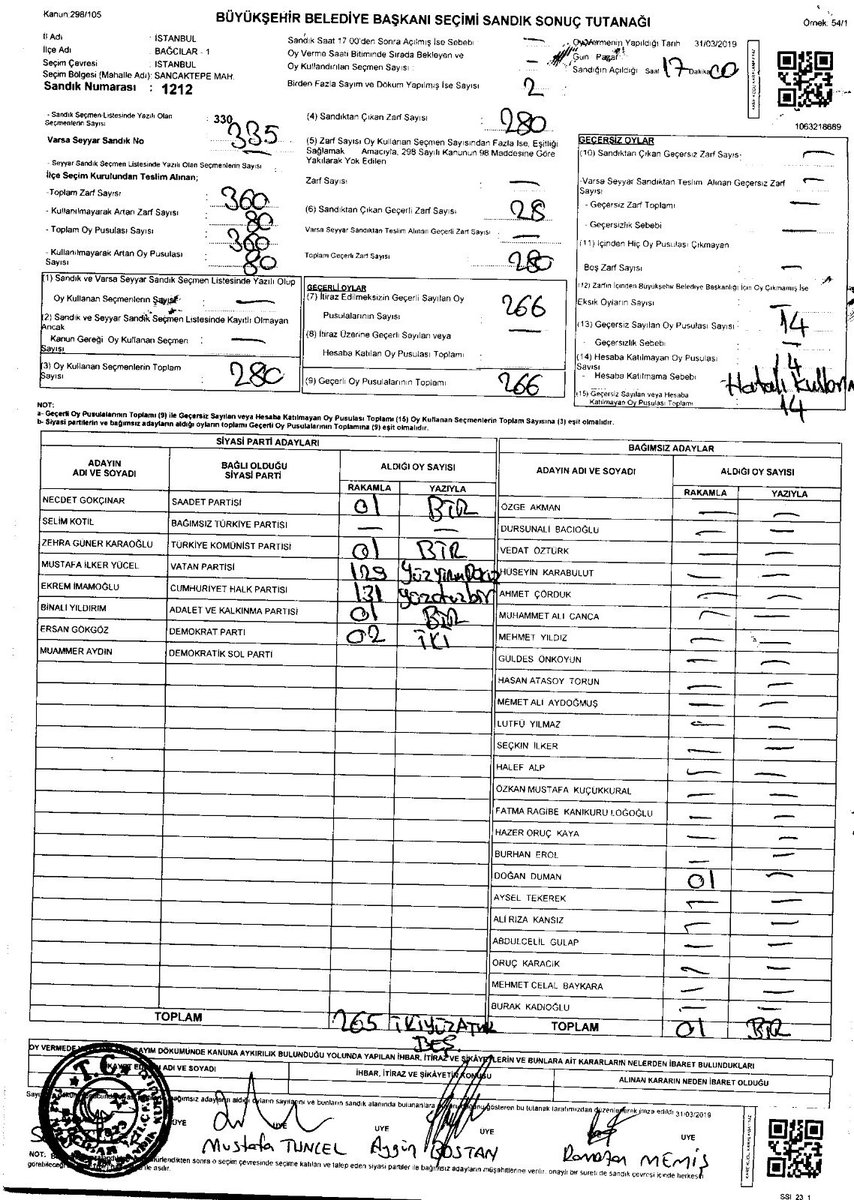 Kanun:298/105
BÜYÜKŞEHİR BELEDİYE BAŞKANI SEÇİMİ SANDIK SONUÇ TUTANAĞI
Örnek: 54/1
İl Adı : İSTANBUL
İlçe Adı : BAĞCILAR - 1
Seçim Çevresi : İSTANBUL
Seçim Bölgesi (Mahalle Adı): SANCAKTEPE MAH.
Sandık Numarası : 1212
Sandık Saat 17:00'den Sonra Açılmış İse Sebebi : —
Oy Verme Saati Bitiminde Sırada Bekleyen ve
Oy Kullandırılan Seçmen Sayısı : —
Birden Fazla Sayım ve Döküm Yapılmış İse Sayısı : 2
Oy Vermenin Yapıldığı Tarih 31/03/2019
Gün Pazar
Sandığın Açıldığı Saat 17 Dakika 00
1063218689
- Sandık Seçmen Listesinde Yazılı Olan Seçmenlerin Sayısı : 330
335
Varsa Seyyar Sandık No —
- Seyyar Sandık Seçmen Listesinde Yazılı Olan Seçmenlerin Sayısı :
İlçe Seçim Kurulundan Teslim Alınan;
-Toplam Zarf Sayısı : 360
- Kullanılmayarak Artan Zarf Sayısı : 80
- Toplam Oy Pusulası Sayısı : 360
- Kullanılmayarak Artan Oy Pusulası Sayısı : 80
(1) Sandık ve Varsa Seyyar Sandık Seçmen Listesinde Yazılı Olup
Oy Kullanan Seçmenlerin Sayısı : —
(2) Sandık ve Seyyar Sandık Seçmen Listesinde Kayıtlı Olmayan Ancak
Kanun Gereği Oy Kullanan Seçmen Sayısı : —
(3) Oy Kullanan Seçmenlerin Toplam Sayısı : 280
(4) Sandıktan Çıkan Zarf Sayısı : 280
(5) Zarf Sayısı Oy Kullanan Seçmen Sayısından Fazla İse, Eşitliği
Sağlamak Amacıyla, 298 Sayılı Kanunun 98 Maddesine Göre
Yakılarak Yok Edilen
Zarf Sayısı : —
(6) Sandıktan Çıkan Geçerli Zarf Sayısı : 28
Varsa Seyyar Sandıktan Teslim Alınan Geçerli Zarf Sayısı : —
Toplam Geçerli Zarf Sayısı : 280
GEÇERLİ OYLAR
(7) İtiraz Edilmeksizin Geçerli Sayılan Oy
Pusulalarının Sayısı : 266
(8) İtiraz Üzerine Geçerli Sayılan veya
Hesaba Katılan Oy Pusulası Toplamı : —
(9) Geçerli Oy Pusulalarının Toplamı : 266
GEÇERSİZ OYLAR
(10) Sandıktan Çıkan Geçersiz Zarf Sayısı- : —
-Varsa Seyyar Sandıktan Teslim Alınan Geçersiz Zarf Sayısı : —
- Geçersiz Zarf Toplamı : —
- Geçersizlik Sebebi : —
(11) İçinden Hiç Oy Pusulası Çıkmayan
Boş Zarf Sayısı : —
(12) Zarfın İçinden Büyükşehir Belediye Başkanlığı İçin Oy Çıkmamış İse
Eksik Oyların Sayısı : —
(13) Geçersiz Sayılan Oy Pusulası Sayısı : 14
- Geçersizlik Sebebi : —
(14) Hesaba Katılmayan Oy Pusulası Sayısı : 14
- Hesaba Katılmama Sebebi : Hatalı
(15) Geçersiz Sayılan veya Hesaba Katılmayan Oy Pusulası Toplamı : 14
NOT:
a- Geçerli Oy Pusulalarının Toplamı (9) ile Geçersiz Sayılan veya Hesaba Katılmayan Oy Pusulası Toplamı (15) Oy Kullanan Seçmenlerin Toplam Sayısına (3) eşit olmalıdır.
b- Siyasi partilerin ve bağımsız adayların aldığı oyların toplamı Geçerli Oy Pusulalarının Toplamına (9) eşit olmalıdır.
SİYASİ PARTİ ADAYLARI
ADAYIN ADI VE SOYADI BAĞLI OLDUĞU SİYASİ PARTİ ALDIĞI OY SAYISI
RAKAMLA YAZIYLA
NECDET GÖKÇINAR SAADET PARTİSİ 01 BİR
SELİM KOTİL BAĞIMSIZ TÜRKİYE PARTİSİ — —
ZEHRA GÜNER KARAOĞLU TÜRKİYE KOMÜNİST PARTİSİ 01 BİR
MUSTAFA İLKER YÜCEL VATAN PARTİSİ 129 Yüzyirmidokuz
EKREM İMAMOĞLU CUMHURİYET HALK PARTİSİ 131 yüzotuzbir
BİNALİ YILDIRIM ADALET VE KALKINMA PARTİSİ 01 BİR
ERSAN GÖKGÖZ DEMOKRAT PARTİ 02 İKİ
MUAMMER AYDIN DEMOKRATİK SOL PARTİ
TOPLAM 265 İKİYÜZATMIŞ BEŞ
BAĞIMSIZ ADAYLAR
ADAYIN ADI VE SOYADI ALDIĞI OY SAYISI
RAKAMLA YAZIYLA
ÖZGE AKMAN — —
DURSUNALİ BACIOĞLU — —
VEDAT ÖZTÜRK — —
HÜSEYİN KARABULUT — —
AHMET ÇÖRDÜK — —
MUHAMMET ALİ CANCA — —
MEHMET YILDIZ — —
GÜLDES ÖNKOYUN — —
HASAN ATASOY TORUN — —
MEMET ALİ AYDOĞMUŞ — —
LÜTFÜ YILMAZ — —
SEÇKİN İLKER — —
HALEF ALP — —
ÖZKAN MUSTAFA KÜÇÜKKURAL — —
FATMA RAGİBE KANIKURU LOĞOĞLU — —
HAZER ORUÇ KAYA — —
BURHAN EROL — —
DOĞAN DUMAN 01 —
AYSEL TEKEREK — —
ALİ RIZA KANSIZ — —
ABDULCELİL GÜLAP — —
ORUÇ KARACIK — —
MEHMET CELAL BAYKARA — —
BURAK KADIOĞLU — —
TOPLAM 01 BİR
OY VERMEDE SAYIM DÖKÜMÜNDE KANUNA AYKIRILIK BULUNDUĞU YOLUNDA YAPILAN İHBAR, İTİRAZ VE ŞİKÂYETLERİN VE BUNLARA AİT KARARLARIN NELERDEN İBARET BULUNDUKLARI
ADI VE SOYADI İHBAR, İTİRAZ VE ŞİKÂYETİN KONUSU ALINAN KARARIN NEDEN İBARET OLDUĞU
bağımsız adayların aldığı oyların sayısını ve bunların sandık alanında bulunanlara gösteren bu tutanak tarafımızdan düzenlenerek imza edildi 31/03/2019
ÜYE ÜYE ÜYE ÜYE
Mustafa TUNCEL Aygün BOSTAN Ramazan MEMİŞ
T.C.
NOT: sonra o seçim çevresinde seçime katılan ve talep eden siyasi partiler ile bağımsız adayların müşahitlerine verilir, onaylı bir sureti de sandık çevresinde herkesin görebileceği asılır.
SSİ_23_1